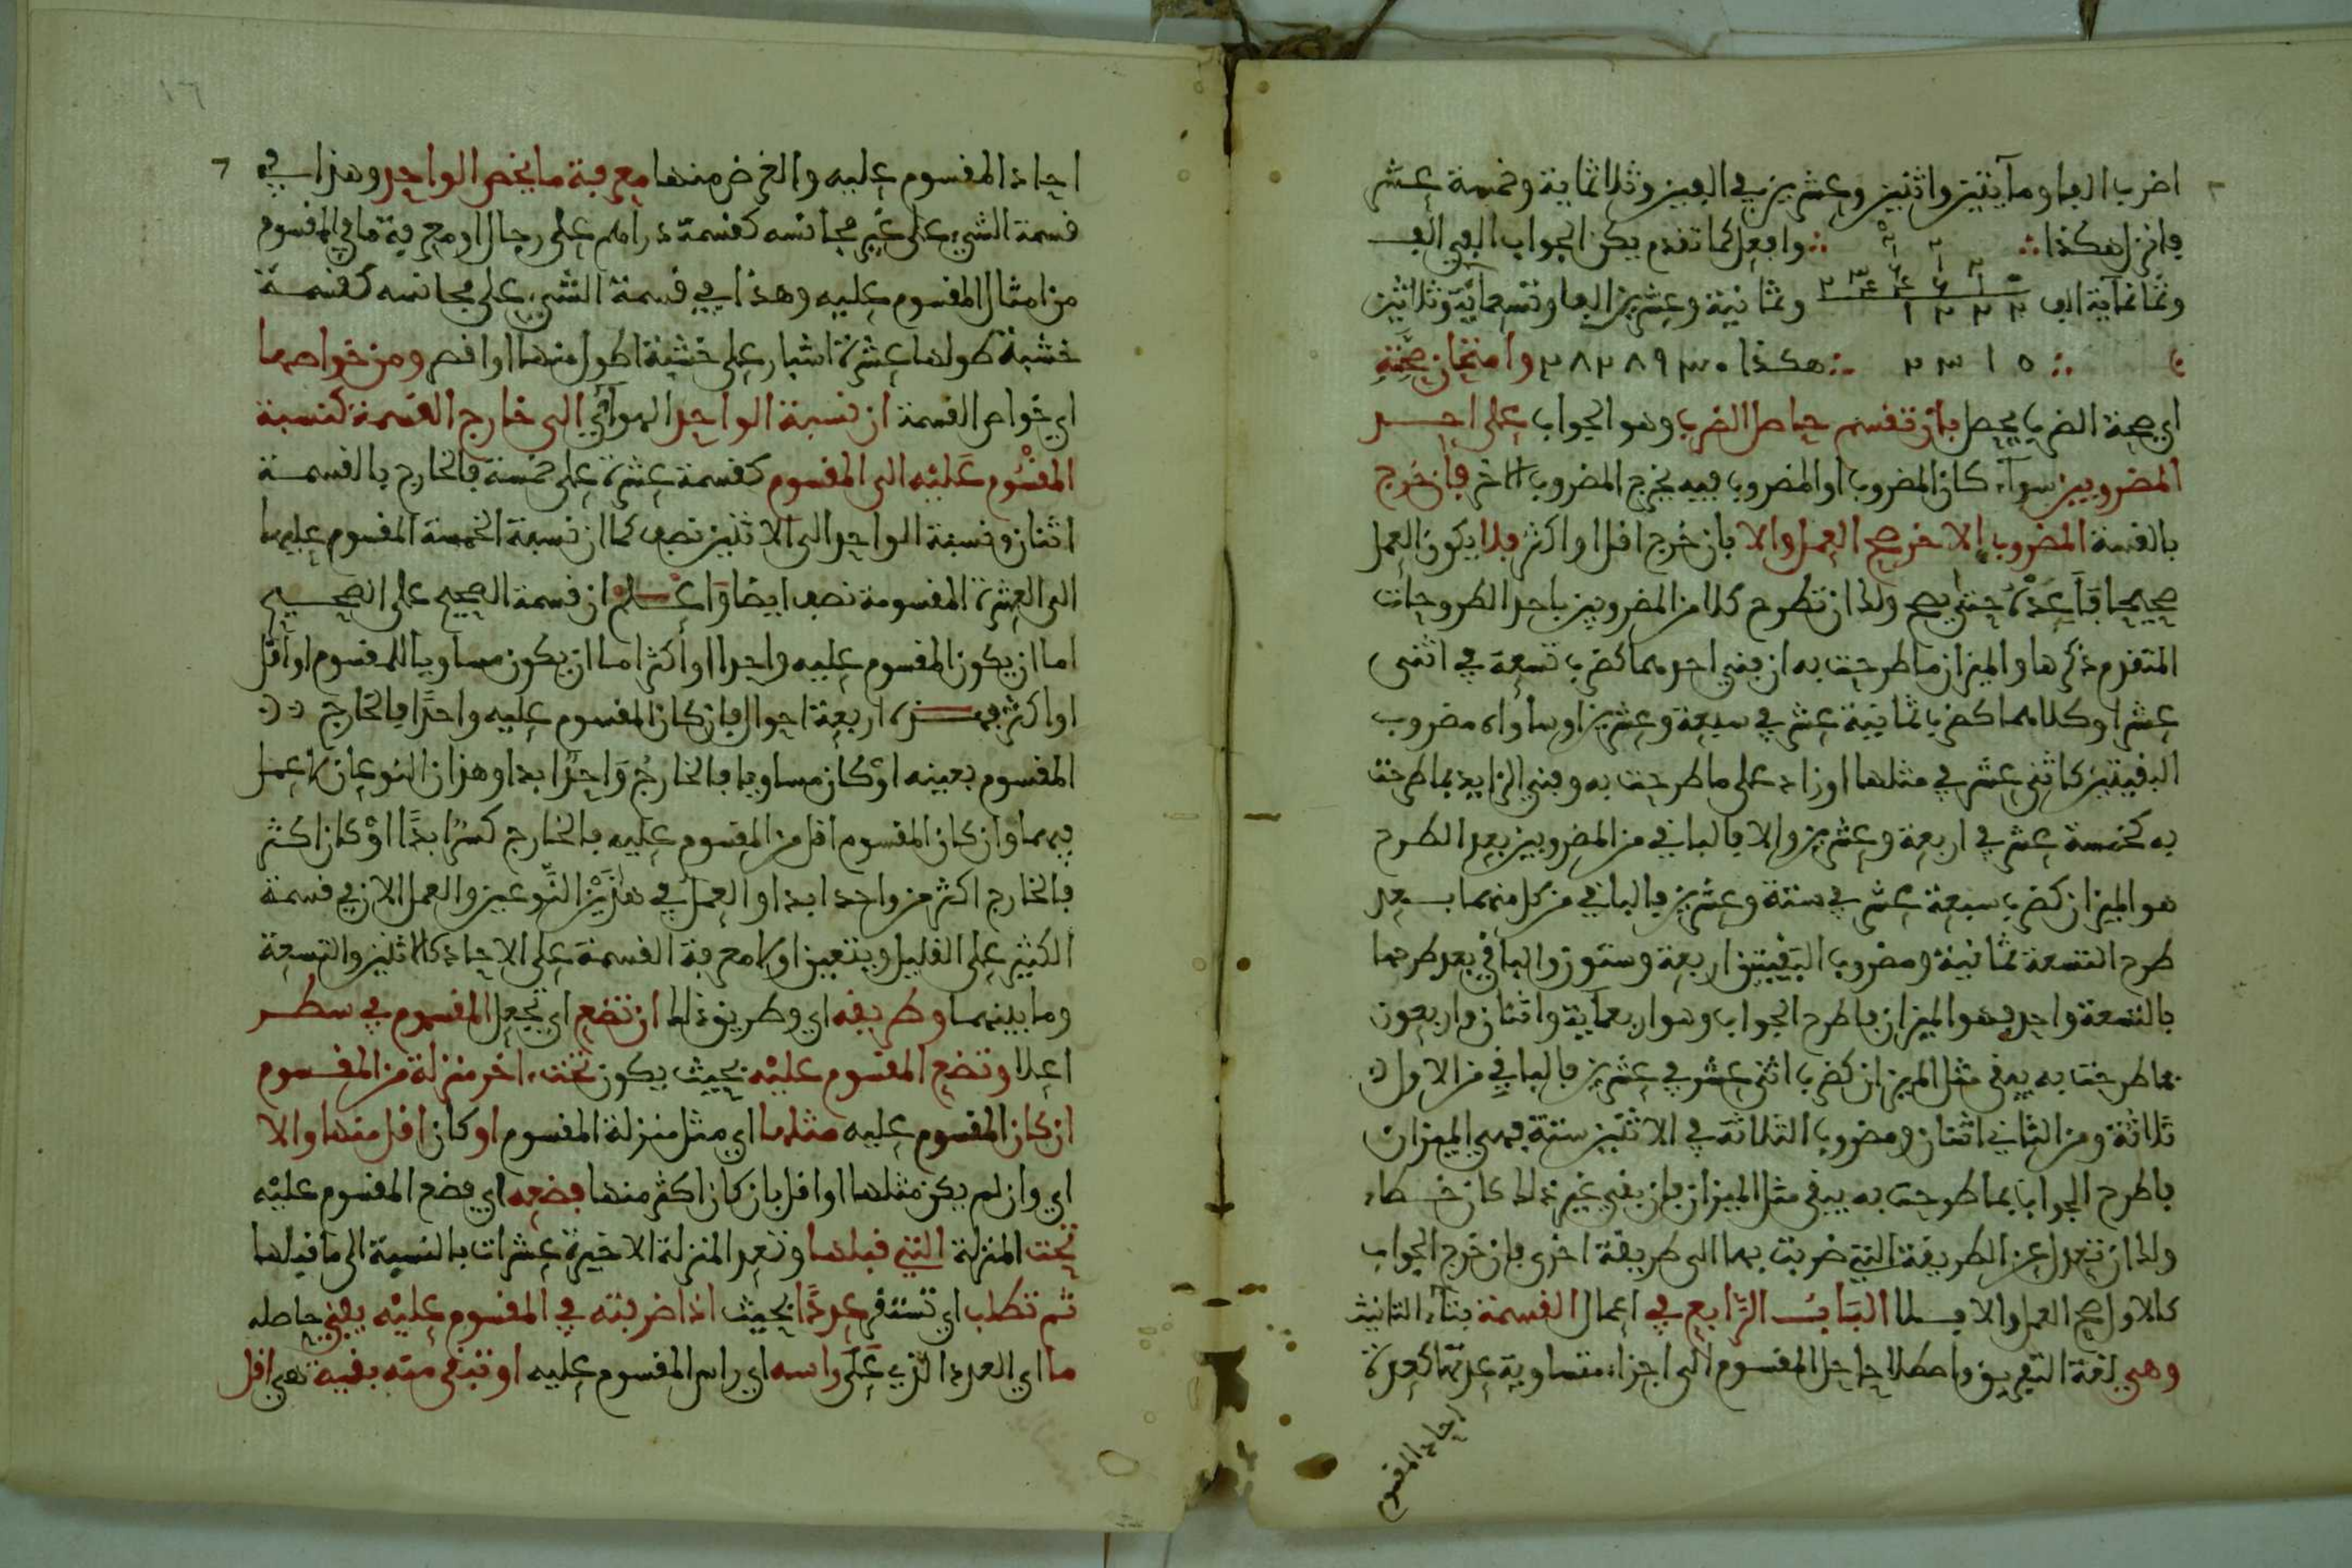 اضرب الفا ومآيتين واثنين وعشرين في الفين وثلاثماية وخمسة عشر
فانزل هكذا ∴ ∴ وافعل كما تقدم يكن الجواب الفي الف
وثمانماية الف ١٢٢٢ وثمانية وعشرين الفا وتسعمآية وثلاثين
∴ ٢٣١٥ ∴ هكذا ٢٨٢٨٩٣٠ وامتحان صحته
اي صحة الضرب يحصل بان تقسم حاصل الضرب وهو الجواب على احد
المضروبين سوآء كان المضروب او المضروب فيه يخرج المضروب الاخر فان خرج
بالقسمة المضروب الاخر صح العمل والا بان خرج اقل او اكثر فلا يكون العمل
صحيحا فاعده حتى يصح ولك ان تطرح كلا من المضروبين باحد الطروحات
المتقدم ذكرها والميزان ما طرحت به ان فني احدهما كضرب تسعة في اثنى
عشر او كلاهما كضرب ثمانية عشر في سبعة وعشرين او ساواه مضروب
البقيتين كاثنى عشر في مثلها او زاد على ما طرحت به وفني الزايد بما طرحت
به كخمسة عشر في اربعة وعشرين والا فالباقي من المضروبين بعد الطرح
هو الميزان كضرب سبعة عشر في ستة وعشرين فالباقي من كل منهما بعد
طرح التسعة ثمانية ومضروب البقيتين اربعة وستون والباقي بعد طرحها
بالتسعة واحد فهو الميزان فاطرح الجواب وهو اربعماية واثنان واربعون
بما طرحت به يبقى مثل الميزان كضرب اثنى عشر في عشرين فالباقي من الاول
ثلاثة ومن الثاني اثنان ومضروب الثلاثة في الاثنين ستة فهي الميزان
فاطرح الجواب بما طرحت به يبقى مثل الميزان فان بقي غير ذلك كان خطاء
ولك ان تعدل عن الطريقة التي ضربت بها الى طريقة اخرى فان خرج الجواب
كالاول صح العمل والا فلا الباب الرابع في اعمال القسمة بتآء التانيث
وهي لغة التفريق واصطلاحا حل المقسوم الى اجزاء متساوية عدتها كعدة
احاد المقسوم
احاد المقسوم عليه والغرض منها معرفة ما يخص الواحد وهذا في
قسمة الشيء على غير مجانسه كقسمة دراهم على رجال او معرفة ما في المقسوم
من امثال المقسوم عليه وهذا في قسمة الشيء على مجانسه كقسمة
خشبة طولها عشرة اشبار على خشبة اطول منها او اقصر ومن خواصها
اي خواص القسمة ان نسبة الواحد الهوآئي الى خارج القسمة كنسبة
المقسوم عليه الى المقسوم كقسمة عشرة على خمسة فالخارج بالقسمة
اثنان ونسبة الواحد الى الاثنين نصف كما ان نسبة الخمسة المقسوم عليها
الى العشرة المقسومة نصف ايضا واعلم ان قسمة الصحيح على الصحيح
اما ان يكون المقسوم عليه واحدا او اكثر اما ان يكون مساويا للمقسوم او اقل
او اكثر فهذه اربعة احوال فان كان المقسوم عليه واحدًا فالخارج
المقسوم بعينه اوْ كان مساويا فالخارجُ واحدٌ ابدا وهذان النوعان لا عمل
فيهما وان كان المقسوم اقل من المقسوم عليه فالخارج كسرٌ ابدًا اوْ كان اكثر
فالخارج اكثر من واحد ابدا والعملُ في هذيْن النّوعين والعمل الان في قسمة
الكثير على القليل ويتعين اولا معرفة القسمة على الاحاد كالاثنين والتسعة
وما بينهما وطريقه اي وطريق ذلك ان تضع اي تجعل المقسوم في سطر
اعلا وتضع المقسوم عليْه بحيث يكون تحت اخر منزلة من المقسوم
ان كان المقسوم عليه مثلها اي مثل منزلة المقسوم او كان اقل منها والا
اي وان لم يكن مثلها او اقل بان كان اكثر منها فضعه اي فضع المقسوم عليْه
تحت المنزلة التي قبلها وتعد المنزلة الاخيرة عشرات بالنسبة الى ما قبلها
ثم تطلب اي تستقر عددًا بحيث اذا ضربته في المقسوم عليْه يفني حاصله
ما اي العدد الذي على راسه اي راس المقسوم عليه او تبقى منه بقية هي اقل